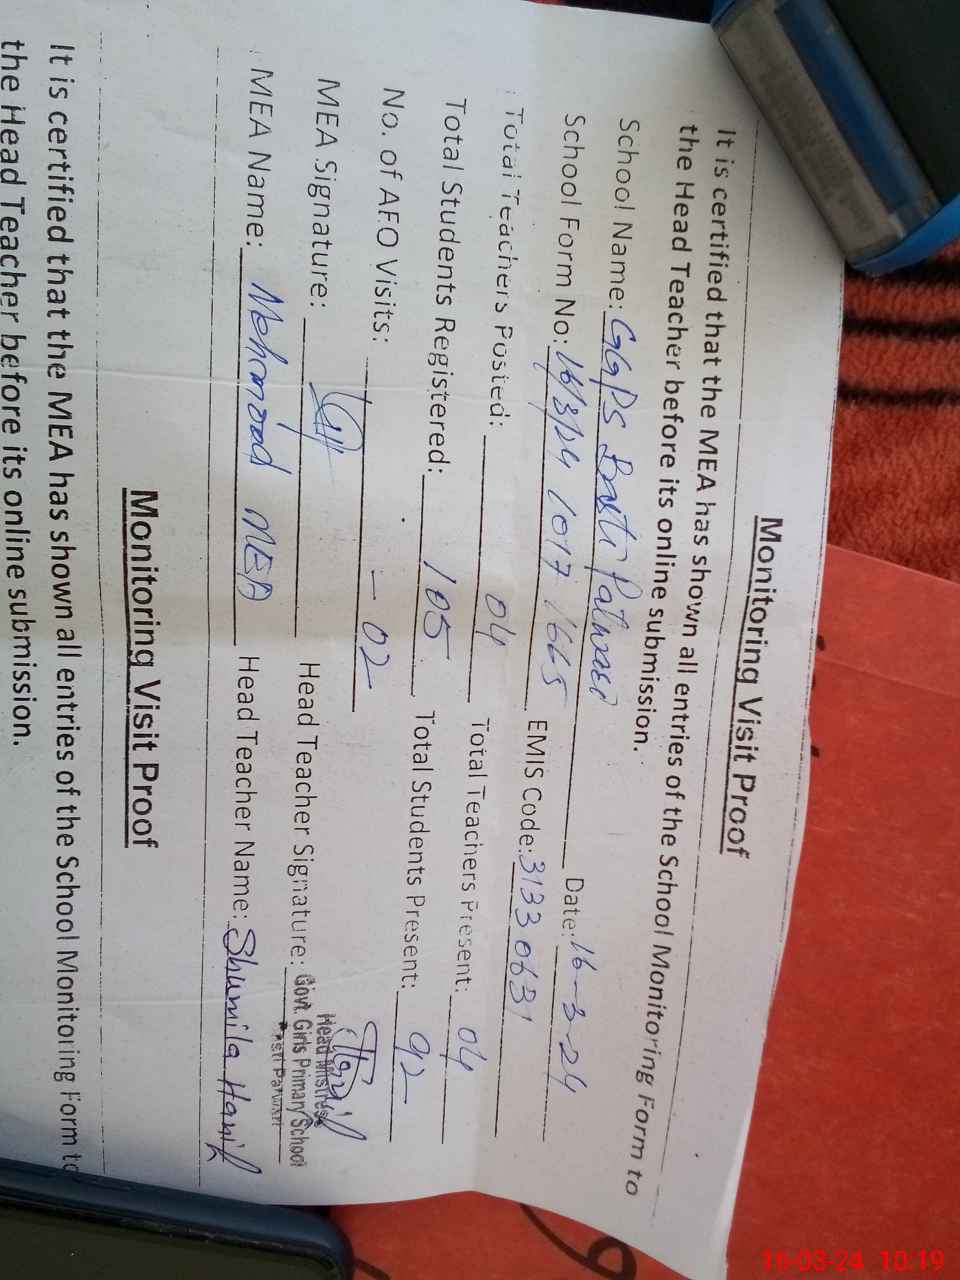 Monitoring Visit Proof
It is certified that the MEA has shown all entries of the School Monitoring Form to
the Head Teacher before its online submission.
School Name: GGPS Basti Patwari Date: 16-3-24
School Form No: 16/3/24 1017 1665 EMIS Code: 31330631
Total Teachers Posted: 04 Total Teachers Present: 04
Total Students Registered: 105 Total Students Present: 92
No. of AEO Visits: - 02
MEA Signature: Head Teacher Signature:
Head Mistress
Govt. Girls Primary School
Basti Patwari
MEA Name: Mehmood MEA Head Teacher Name: Shumila Hanif
Monitoring Visit Proof
It is certified that the MEA has shown all entries of the School Monitoring Form to
the Head Teacher before its online submission.
16-03-24 10:19